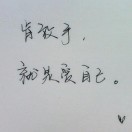 肯放手，
就是爱自己。